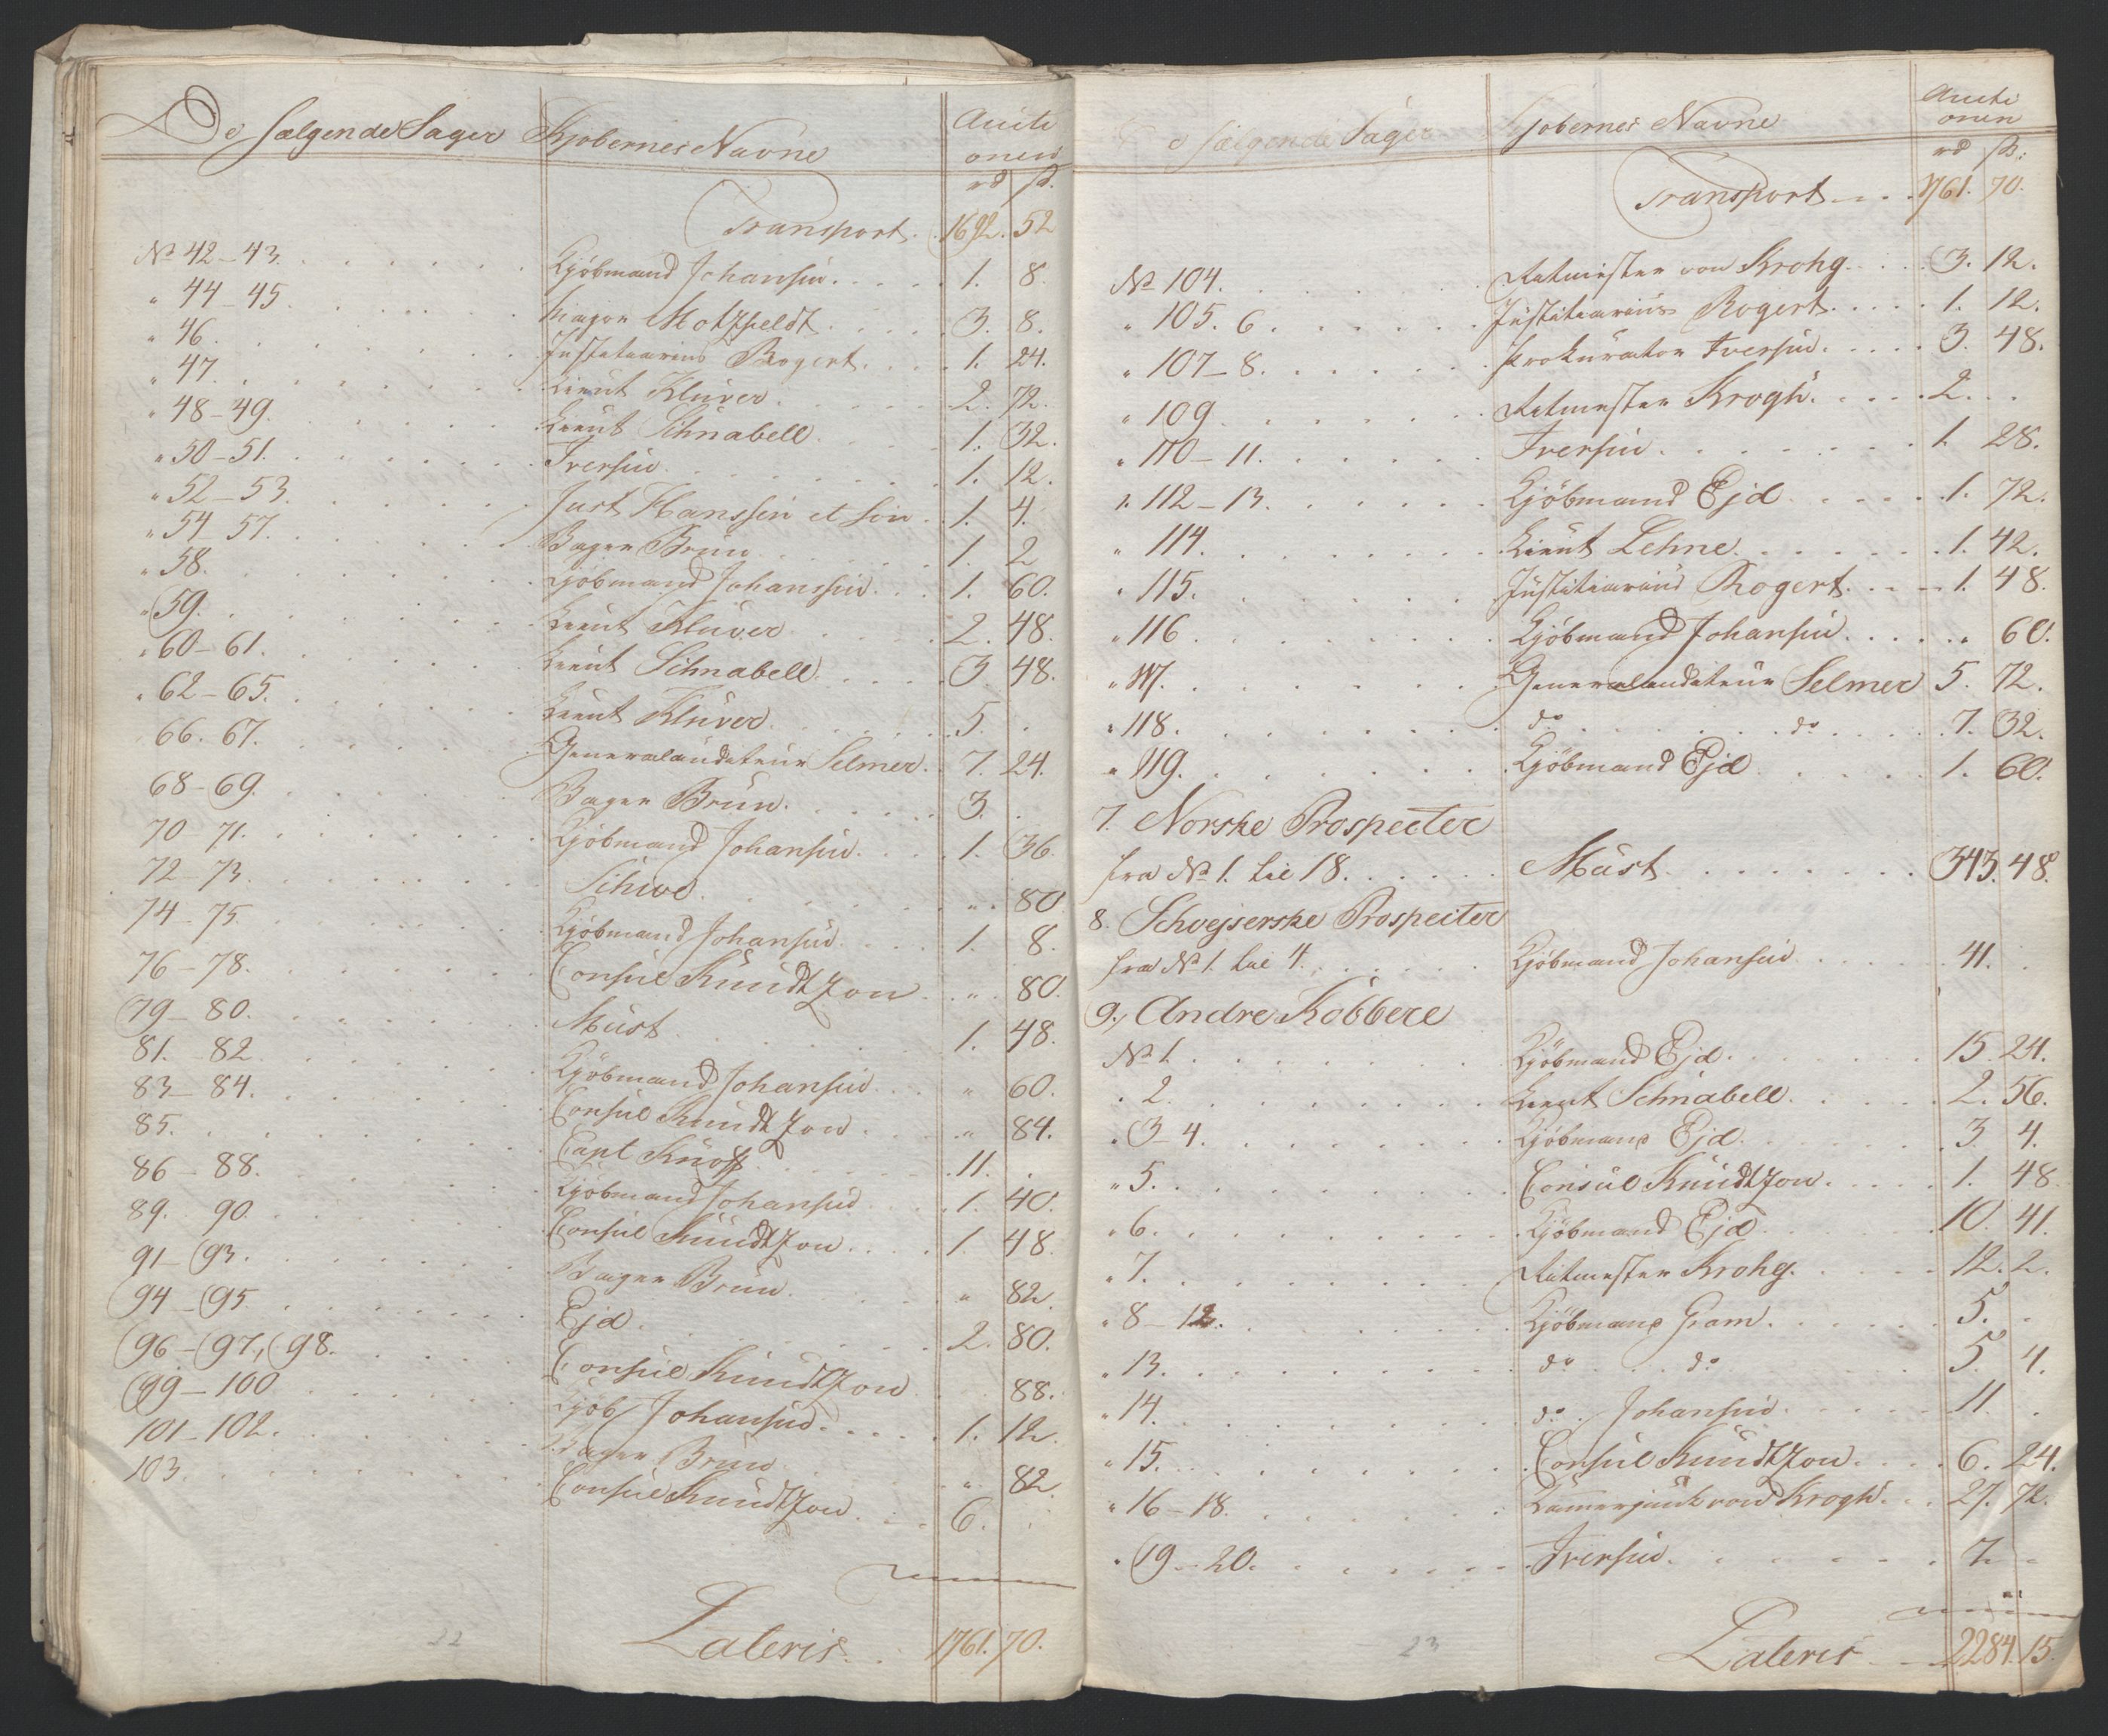 De sælgende Sager Kjøbernes Navne Aucti
onen
rd ſß.
Transport. 1692. 52
No 42–43. Kjöbmand Johanſen. 1. 8.
" 44–45. Major Motzfeldt. 3. 8.
" 46. Justitiarius Rogert. 1. 24.
" 47. Lieut Klüver. 2. 72.
" 48–49. Lieut Schnabell. 1. 32.
" 50–51. Iverſen. 1. 12.
" 52–53. Just Hansſen et Sön. 1. 4.
" 54–57. Bager Brün. 1. 2
" 58. Kjöbmand Johansſen. 1. 60.
" 59. Lieut Klüver. 2. 48.
" 60–61. Lieut Schnabell. 3. 48.
" 62–65. Lieut Klüver. 5. .
66. 67. Generalauditeur Selmer. 7. 24.
68–69. Bager Brün. 3. .
70–71. Kjöbmand Johanſen. 1. 36.
72–73. Schive. " 80
74–75. Kjöbmand Johanſen. 1. 8.
76–78. Conſul Knudtzon. " 80.
79–80. Müst 1. 48.
81.–82. Kjöbmand Johanſen. " 60.
83–84. Conſul Knudtzon. " 84.
85. Capt Knoff. 11. .
86–88. Kjöbmand Johanſen. 1. 40.
89. 90. Conſul Knudtzon. 1. 48.
91–93. Bager Brün. " 82.
94–95 Ejd. 2. 80.
96–97., 98. Conſul Knudtzon. 88.
99–100 Kjöb Johanſen. 1. 12.
101–102. Bager Brün " 82.
103. Conſul Knudtzon. 6. .
Lateris. 1761. 70.
22
De sælgende Sager Kjøbernes Navne Aucti
onen
rd ſß.
Transport 1761. 70.
No 104. Ritmester von Krohg. 3. 12.
" 105. 6. Justitiarius Rogert. 1. 12.
" 107–8. Prokurator Iverſen. 3. 48.
" 109. Ritmester Krogh. 2. .
" 110–11. Iverſen. 1. 28.
" 112–13. Kjöbmand Ejd. 1. 72.
" 114. Lieut Lehne. 1. 42.
" 115. Justitiarius Rogert. 1. 48.
" 116. Kjöbmand Johanſen. " 60.
" 117. Generalauditeur Selmer 5. 72.
" 118. do do 7. 32.
" 119. Kjöbmand Ejd 1. 60.
7. Norske Prospecter
fra No 1. til 18. Müst. 343. 48.
8. Schvejserske Prospecter
fra No 1. til 4. Kjöbmand Johanſen. 41. .
9., Andre Kobbere
No 1. Kjöbmand Ejd. 15. 24.
" 2. Lieut Schnabell. 2. 56.
" 3–4. Kjöbmand Ejd. 3 4.
" 5. Consul Knudtzon. 1. 48
" 6. Kjöbmand Ejd 10. 41.
" 7. Ritmester Krohg. 12. 2.
" 8–12. Kjöbmand Gram. 5. .
" 13. do do 5. 4.
" 14. do Johanſen. 11. .
" 15. Conſul Knudtzon. 6. 24.
" 16–18. Kammerjunk von Krogh. 27. 72.
" 19–20. Iverſen. 7. –
Lateris 2284. 15.
23